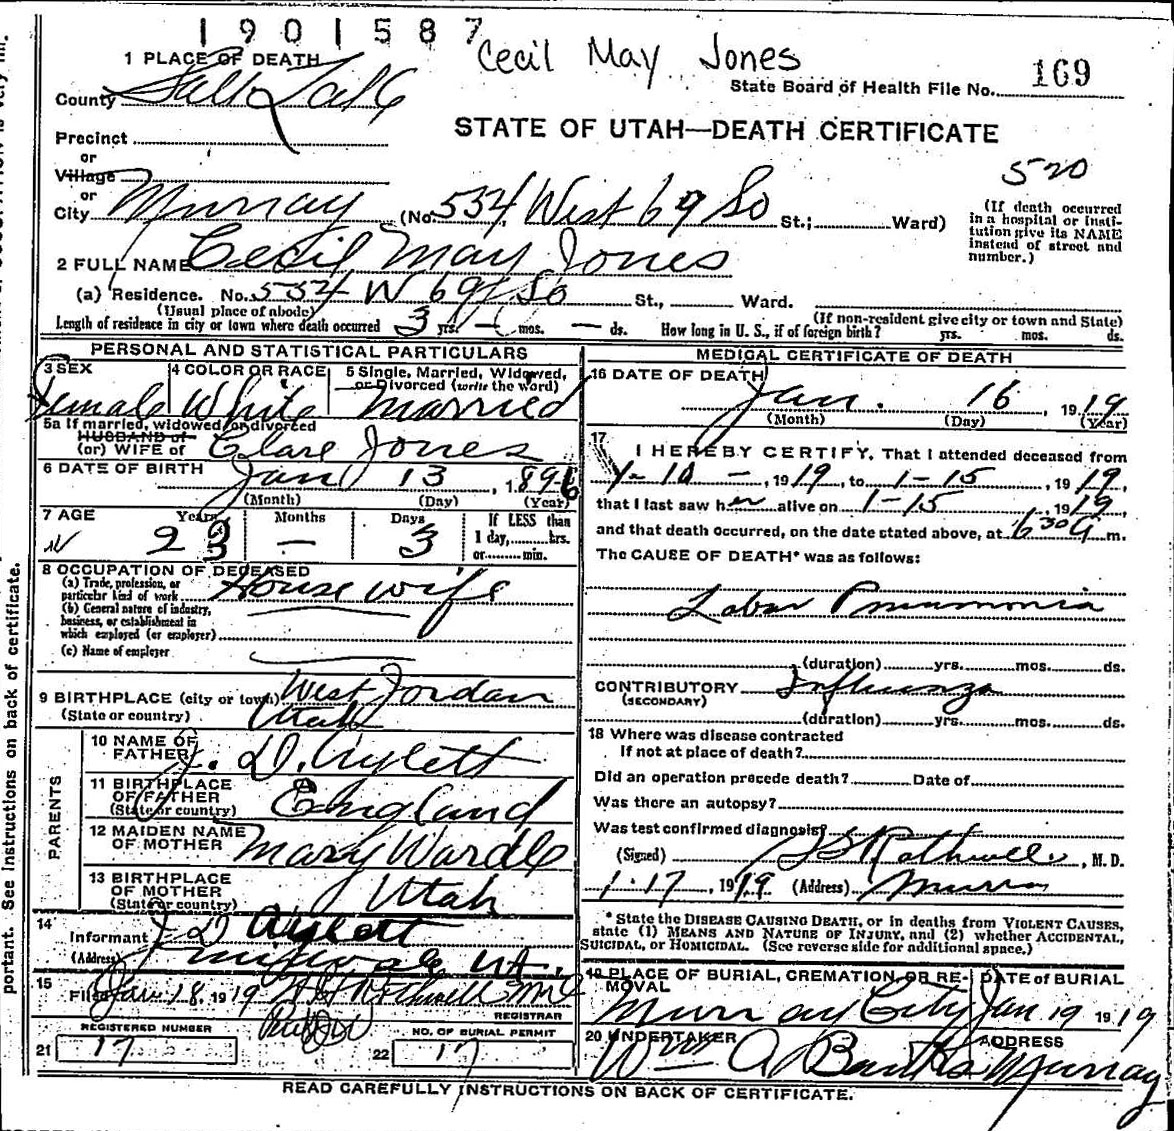 1901587
Cecil May Jones
1 PLACE OF DEATH
State Board of Health File No. 169
County Salt Lake
STATE OF UTAH—DEATH CERTIFICATE
Precinct
or
Village
520
or
City Murray (No. 534 West 69 So St.; Ward)
(If death occurred in a hospital or institution give its NAME instead of street and number.)
2 FULL NAME Cecil May Jones
(a) Residence. No. 534 W 69 So St., Ward.
(Usual place of abode) (If non-resident give city or town and State)
Length of residence in city or town where death occurred 3 yrs. — mos. — ds. How long in U. S., if of foreign birth? yrs. mos. ds.
PERSONAL AND STATISTICAL PARTICULARS
3 SEX 4 COLOR OR RACE 5 Single, Married, Widowed, or Divorced (write the word)
Female White Married
5a If married, widowed, or divorced
HUSBAND of
(or) WIFE of Clare Jones
6 DATE OF BIRTH Jan 13, 1896
(Month) (Day) (Year)
7 AGE Years Months Days If LESS than 1 day, hrs. or min.
23 — 3
8 OCCUPATION OF DECEASED
(a) Trade, profession, or particular kind of work House wife
(b) General nature of industry, business, or establishment in which employed (or employer)
(c) Name of employer
9 BIRTHPLACE (city or town) West Jordan
(State or country) Utah
PARENTS
10 NAME OF FATHER J. D. Aylett
11 BIRTHPLACE OF FATHER (State or country) England
12 MAIDEN NAME OF MOTHER Mary Wardle
13 BIRTHPLACE OF MOTHER (State or country) Utah
14 Informant J D Aylett
(Address) UT.
15 Filed Jan 18, 1919 Rothwell MD
REGISTRAR
REGISTERED NUMBER NO. OF BURIAL PERMIT
21 17 22 17
MEDICAL CERTIFICATE OF DEATH
16 DATE OF DEATH
Jan. 16, 1919
(Month) (Day) (Year)
17 I HEREBY CERTIFY, That I attended deceased from
1-10-, 1919, to 1-15, 1919,
that I last saw her alive on 1-15, 1919,
and that death occurred, on the date stated above, at 6 30 a m.
The CAUSE OF DEATH* was as follows:
Lobar Pneumonia
(duration) yrs. mos. ds.
CONTRIBUTORY Influenza
(SECONDARY)
(duration) yrs. mos. ds.
18 Where was disease contracted
If not at place of death?
Did an operation precede death? Date of
Was there an autopsy?
Was test confirmed diagnosis?
(Signed) Rothwell, M. D.
1-17, 1919 (Address) Murray
* State the DISEASE CAUSING DEATH, or in deaths from VIOLENT CAUSES, state (1) MEANS AND NATURE OF INJURY, and (2) whether ACCIDENTAL, SUICIDAL, or HOMICIDAL. (See reverse side for additional space.)
19 PLACE OF BURIAL, CREMATION, OR REMOVAL DATE of BURIAL
Murray City Jan 19 1919
20 UNDERTAKER ADDRESS
Wm A Murray
READ CAREFULLY INSTRUCTIONS ON BACK OF CERTIFICATE.
portant. See instructions on back of certificate.